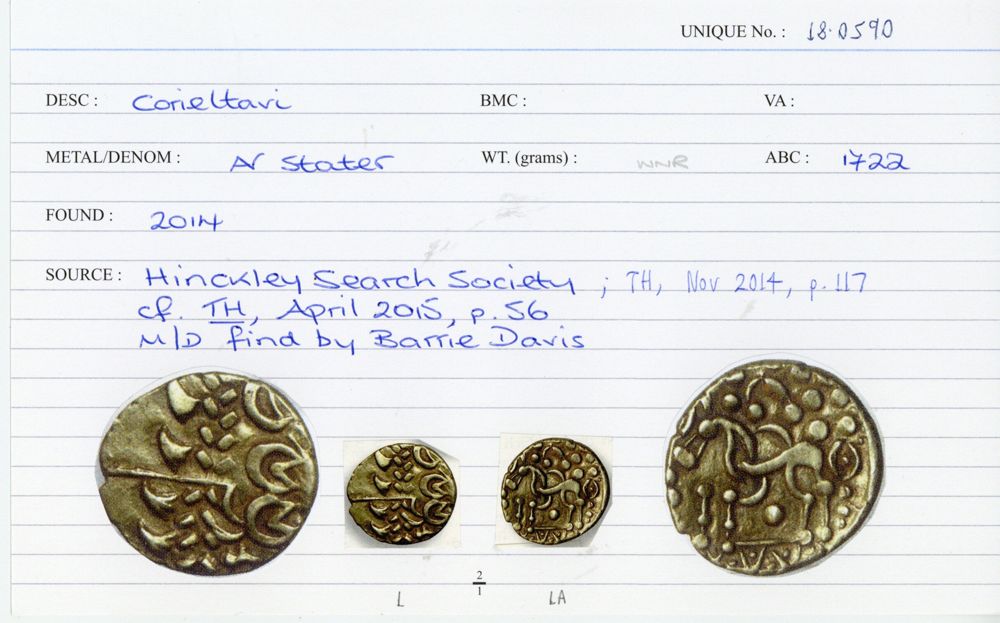 UNIQUE No. : 18.0590
DESC : Corieltavi BMC : VA :
METAL/DENOM : AV Stater WT. (grams) : WNR ABC : 1722
FOUND : 2014
SOURCE : Hinckley Search Society ; TH, Nov 2014, p. 117
cf. TH, April 2015, p. 56
M/D find by Barrie Davis
2
1
L LA